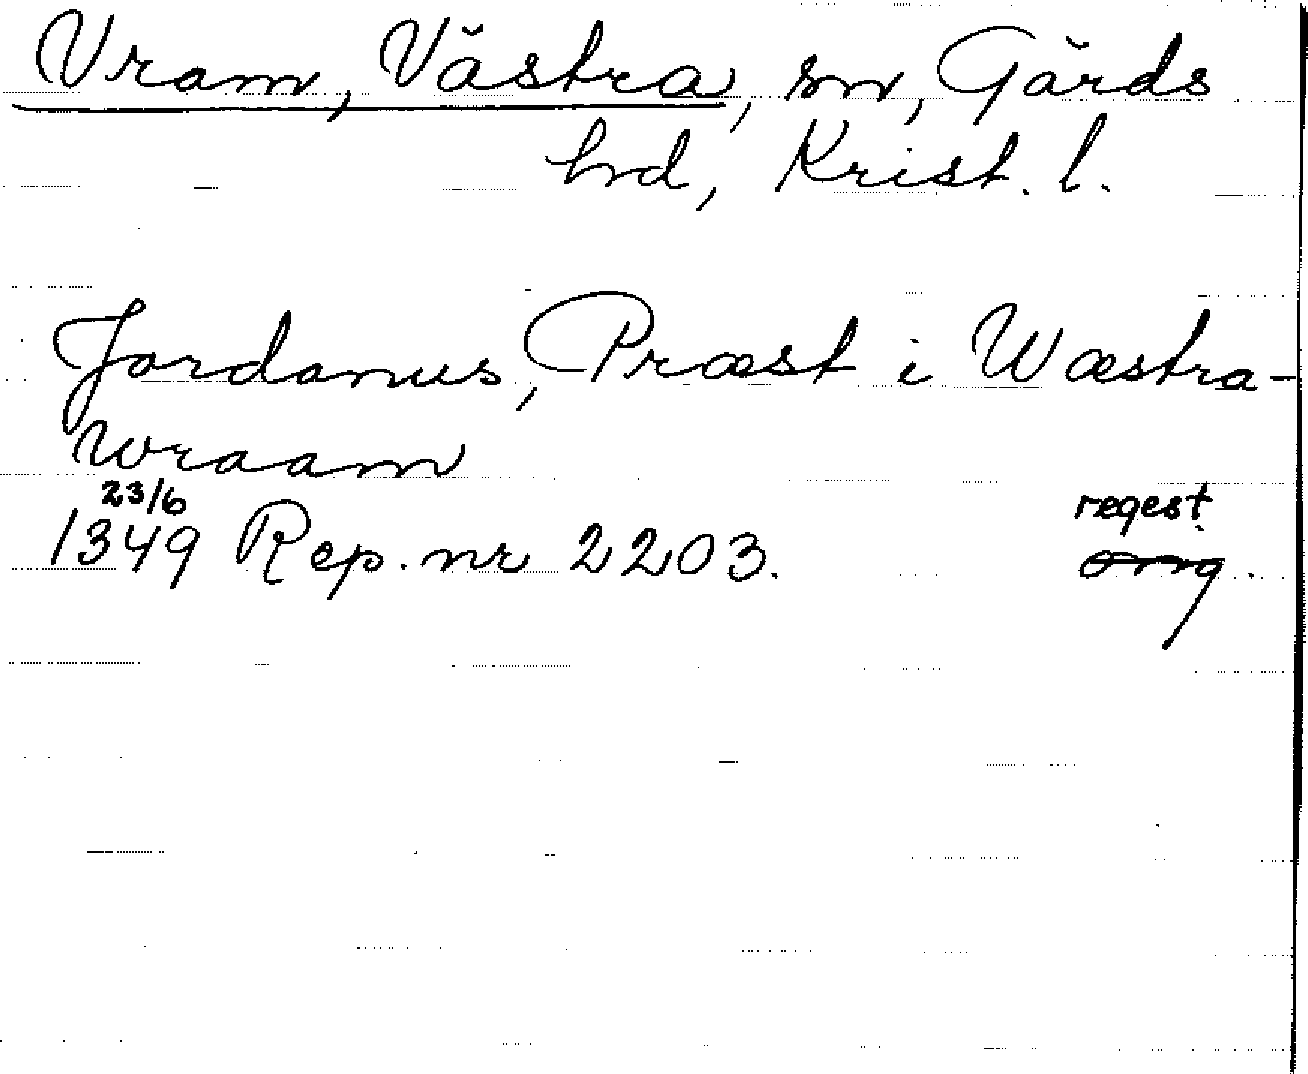 Vram, Västra, sn, Gärds
hd, Krist. l.
Jordanus, Præst i Wæstra-
wraam
23/6
1349 Rep. nr 2203.
regest.
orig.